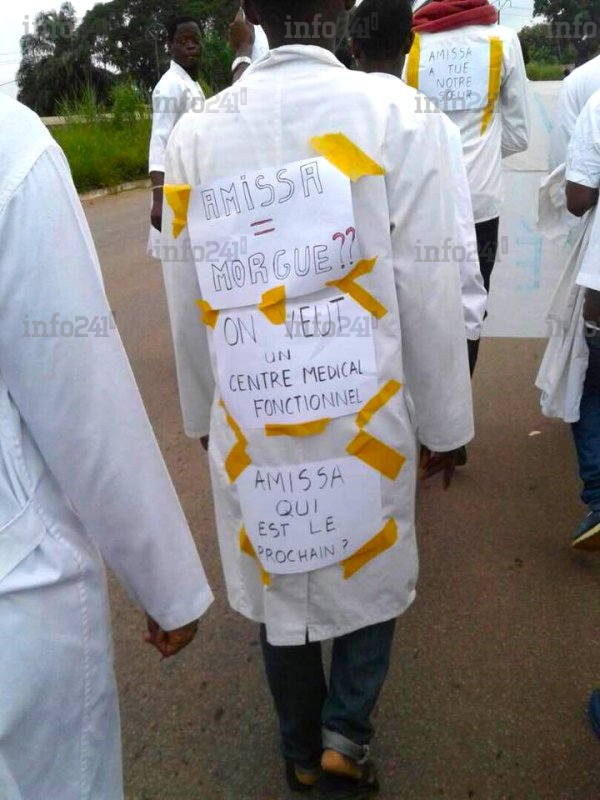 AMISSA
A TUE
NOTRE
SŒUR
AMISSA
=
MORGUE??
ON VEUT
UN
CENTRE MEDICAL
FONCTIONNEL
AMISSA
QUI
EST LE
PROCHAIN ?
info241
info241
info241
info241
info241
info241
info241
info241
info241
info241
info241
info241